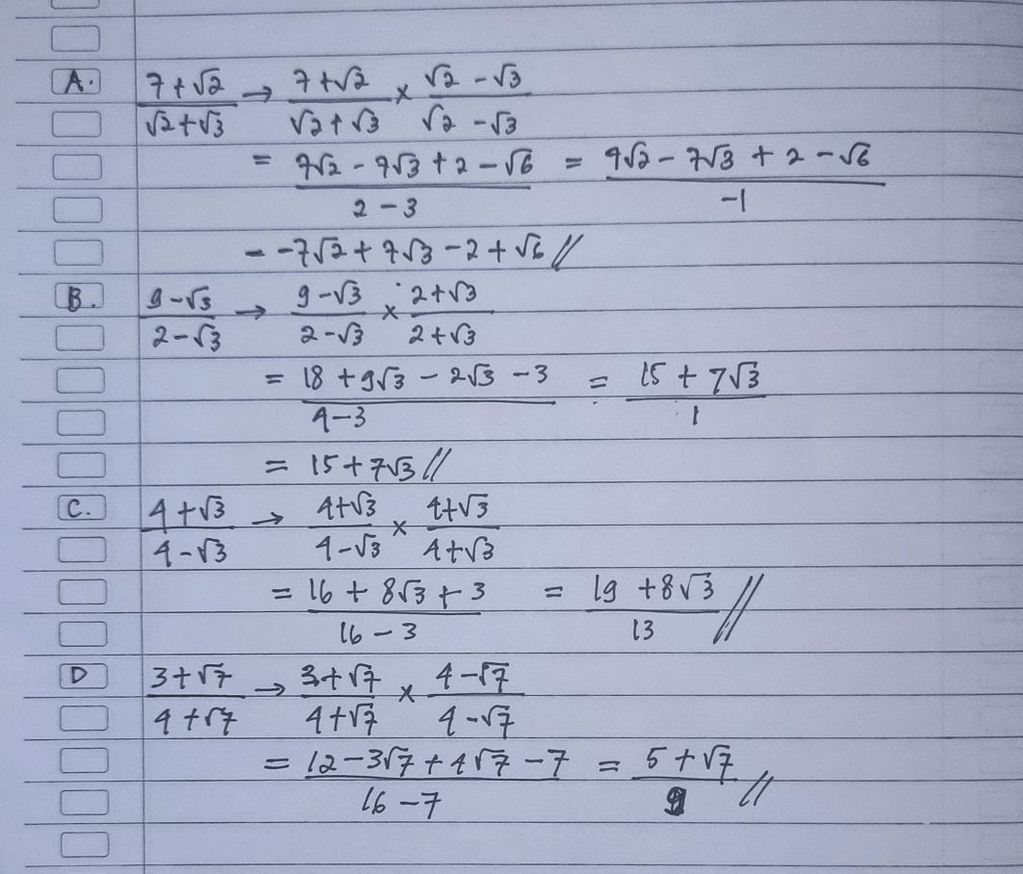 A. (7+√2)/(√2+√3) → (7+√2)/(√2+√3) × (√2-√3)/(√2-√3)
= (7√2-7√3+2-√6)/(2-3) = (7√2-7√3+2-√6)/(-1)
= -7√2+7√3-2+√6//
B. (9-√3)/(2-√3) → (9-√3)/(2-√3) × (2+√3)/(2+√3)
= (18+9√3-2√3-3)/(4-3) = (15+7√3)/1
= 15+7√3//
C. (4+√3)/(4-√3) → (4+√3)/(4-√3) × (4+√3)/(4+√3)
= (16+8√3+3)/(16-3) = (19+8√3)/13//
D (3+√7)/(4+√7) → (3+√7)/(4+√7) × (4-√7)/(4-√7)
= (12-3√7+4√7-7)/(16-7) = (5+√7)/9//